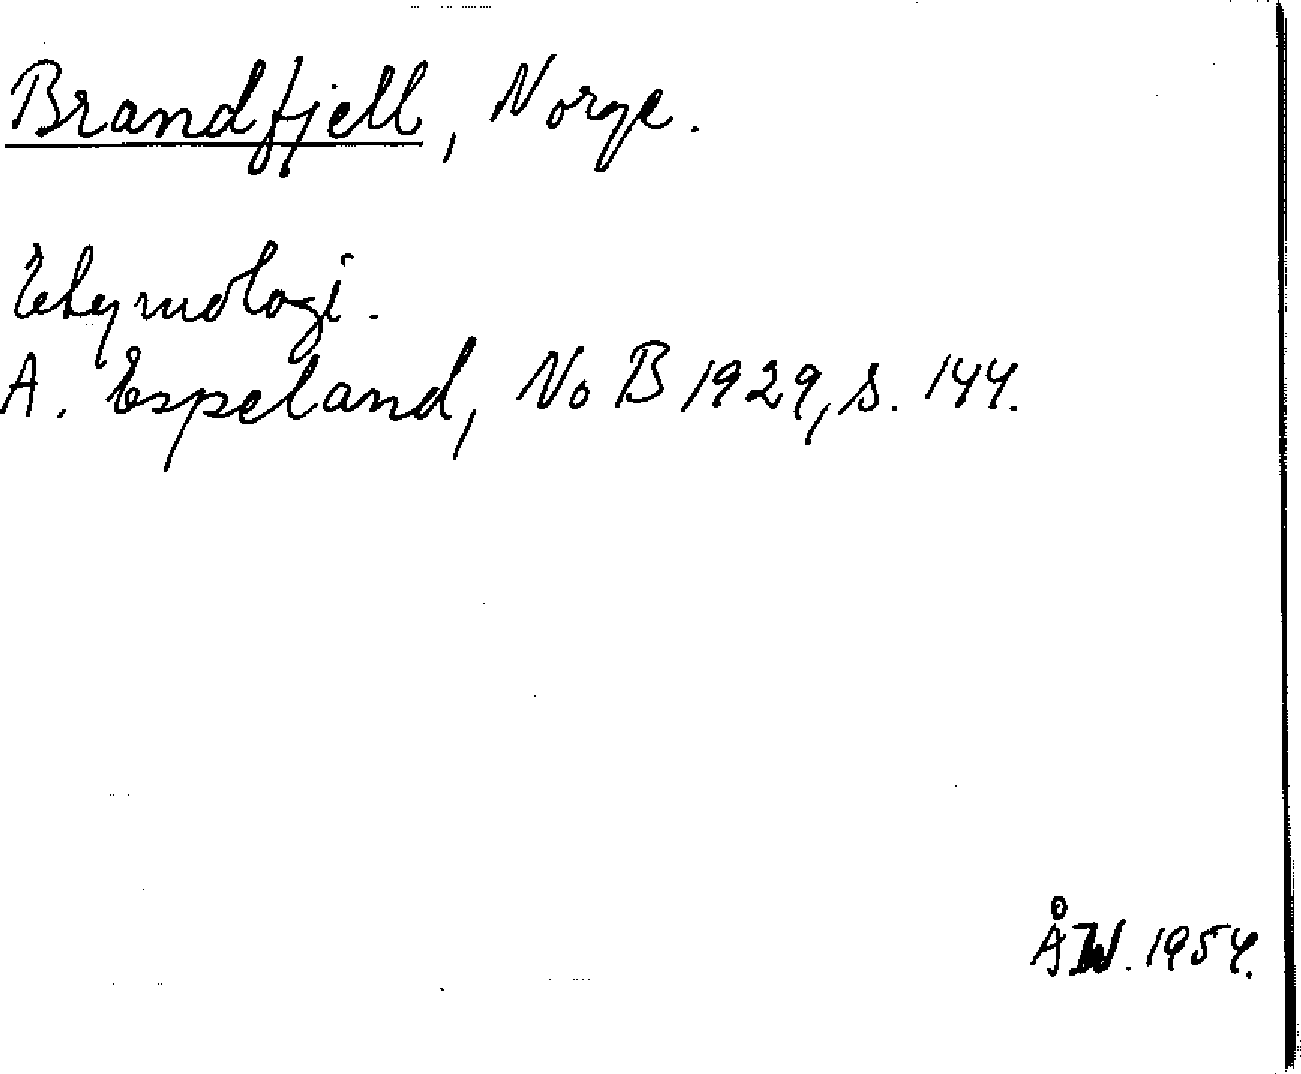 Brandfjell, Norge.
Etymologi.
A. Espeland, No B 1929, s. 144.
ÅW. 1954.